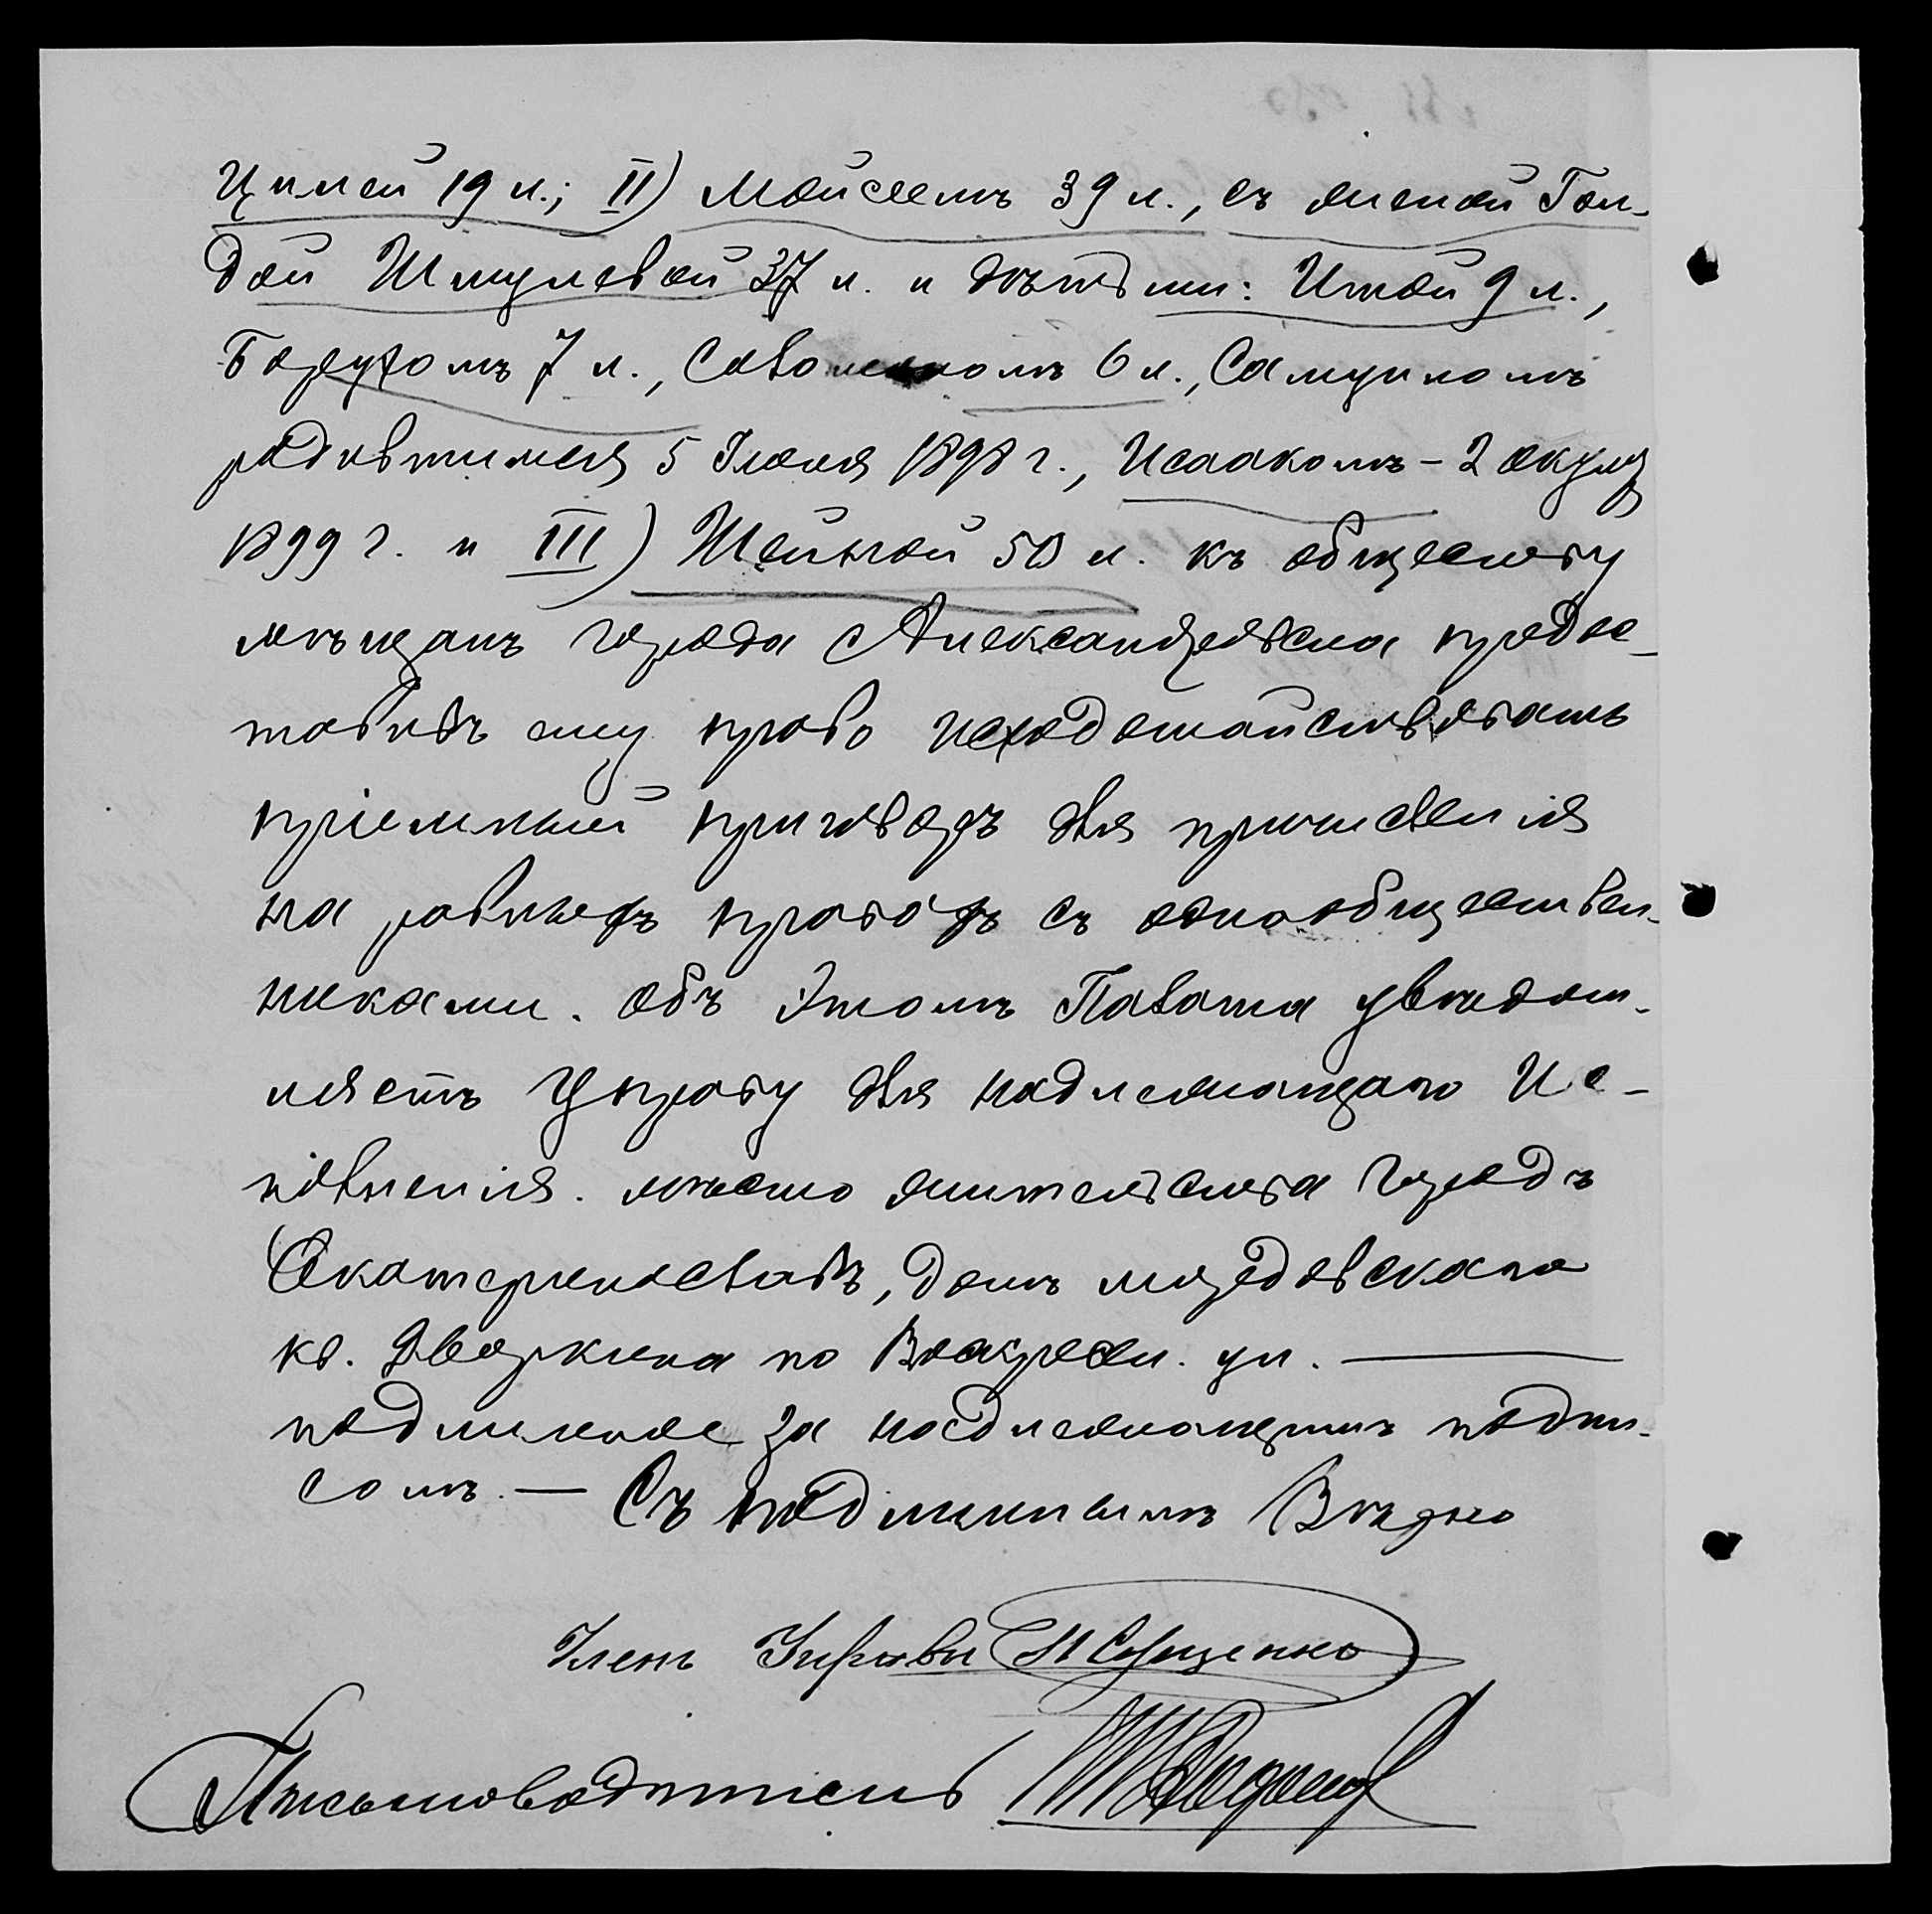 Цилей 19 л.; II) Мойсеемъ 39 л., съ женой Гол-
дой Шмулевой 37 л. и дѣтьми: Итой 9 л.,
Борухомъ 7 л., 6 л., Самуиломъ
родившимся 5 Іюля 1898 г., Исаакомъ - 2 окт.
1899 г. и III) Шейной 50 л. къ обществу
мѣщанъ города Александровска предос-
тавивъ ему право исходатайствовать
пріемный приговоръ для причисленія
на равныхъ правахъ съ однообществен-
никами. Объ этомъ Палата увѣдом-
ляетъ Управу для надлежащаго Ис-
полненія. мѣсто жительства городъ
Екатеринославъ, домъ
кв. Дворкина по Воскресен. ул. —
подлинное за надлежащимъ подпи-
сомъ. — Съ подлиннымъ Вѣрно
Членъ Управы
Письмоводитель